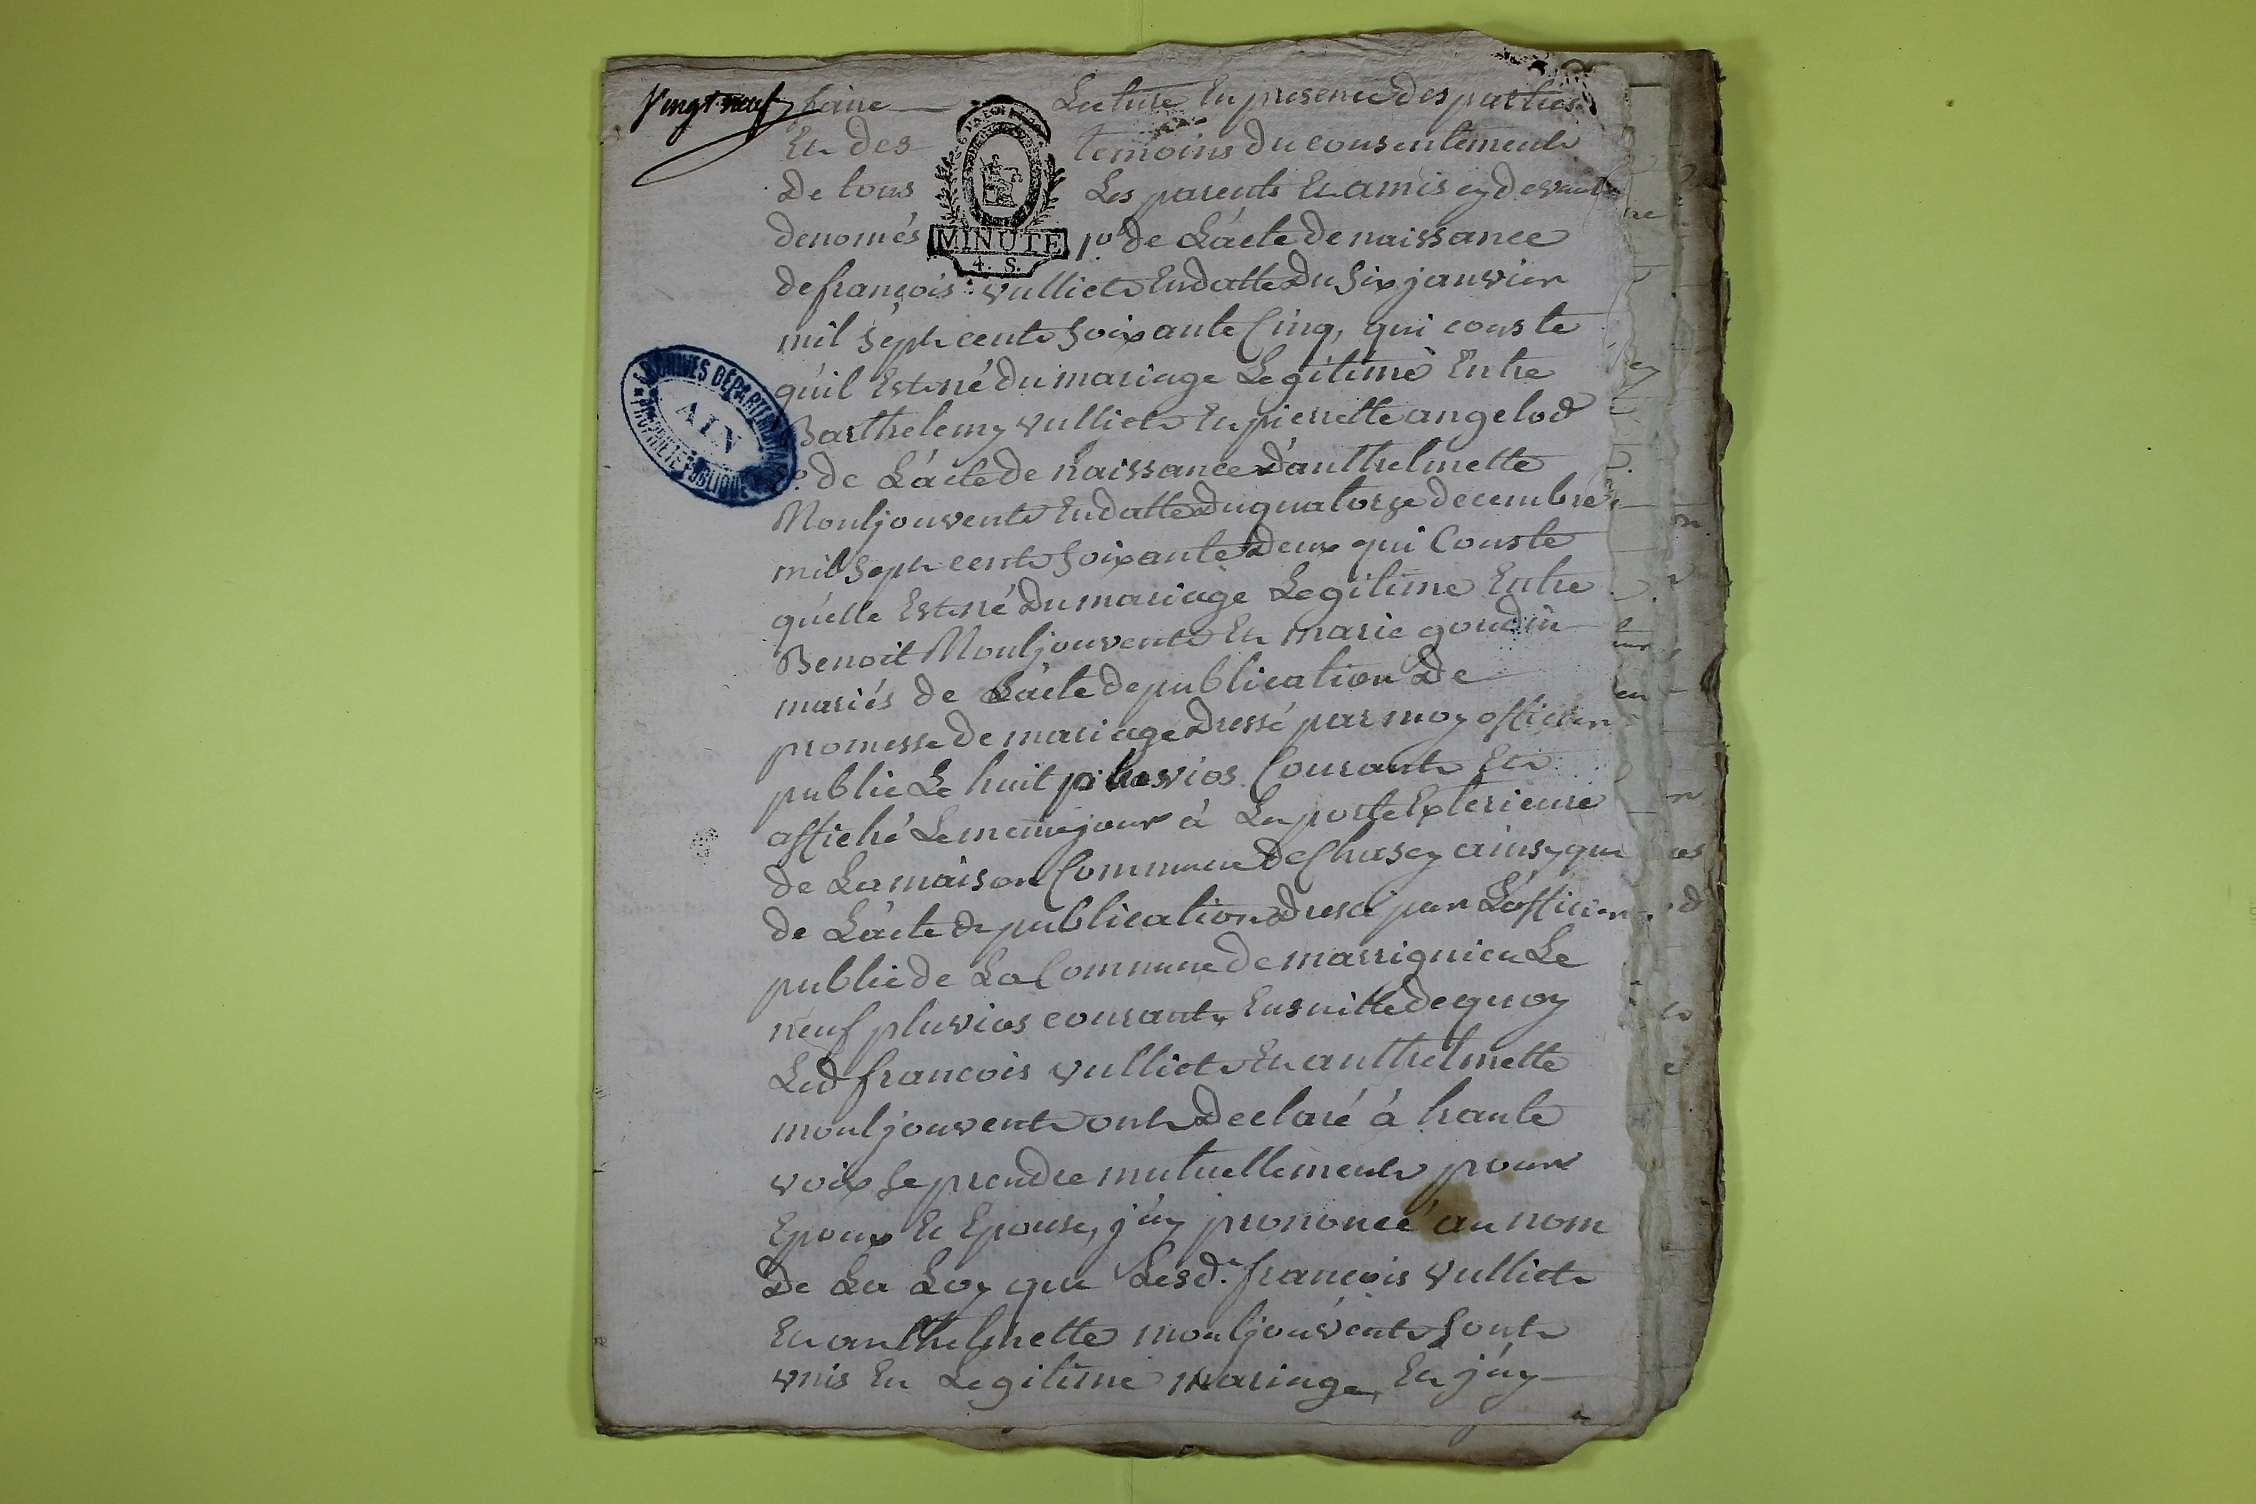 Vingt neuf
faire Lecture En presence des parties
Et des temoins du consentement
de tous Les parents Et amis cy devant
denomés 1º de L'acte de naissance
MINUTE
4. S.
de françois vulliet En datte du Six janvier
mil Sept cent Soixante Cinq, qui conste
qu'il Est né du mariage Legitime Entre
Barthelemy vulliet Et pierrette angelod
ARCHIVES DÉPARTEMENTALES
AIN
PROPRIÉTÉ PUBLIQUE
de L'acte de naissance d'anthelmette
Montjouvent En datte du quatorze decembre
mil Sept cent Soixante deux qui Conste
qu'elle Est né du mariage Legitime Entre
Benoit Montjouvent Et marie goudin
mariés de L'acte de publication de
promesse de mariage dressé par moy officier
public Le huit pluvios Courant Et
affiché Le meme jour à La porte Exterieure
de La maison Commune de Chasey ainsy que
de L'acte de publication dressé par L'officier
public de La Commune de marrignieu Le
neuf pluvios courant, Ensuitte de quoy
Led françois vulliet Et anthelmette
montjouvent ont declaré à haute
voix Se prendre mutuellement pour
Epoux Et Epouse, j'ay prononcé au nom
de La Loy que Lesd. françois vulliet
Et anthelmette montjouvent Sont
unis En Legitime mariage, Et j'ay